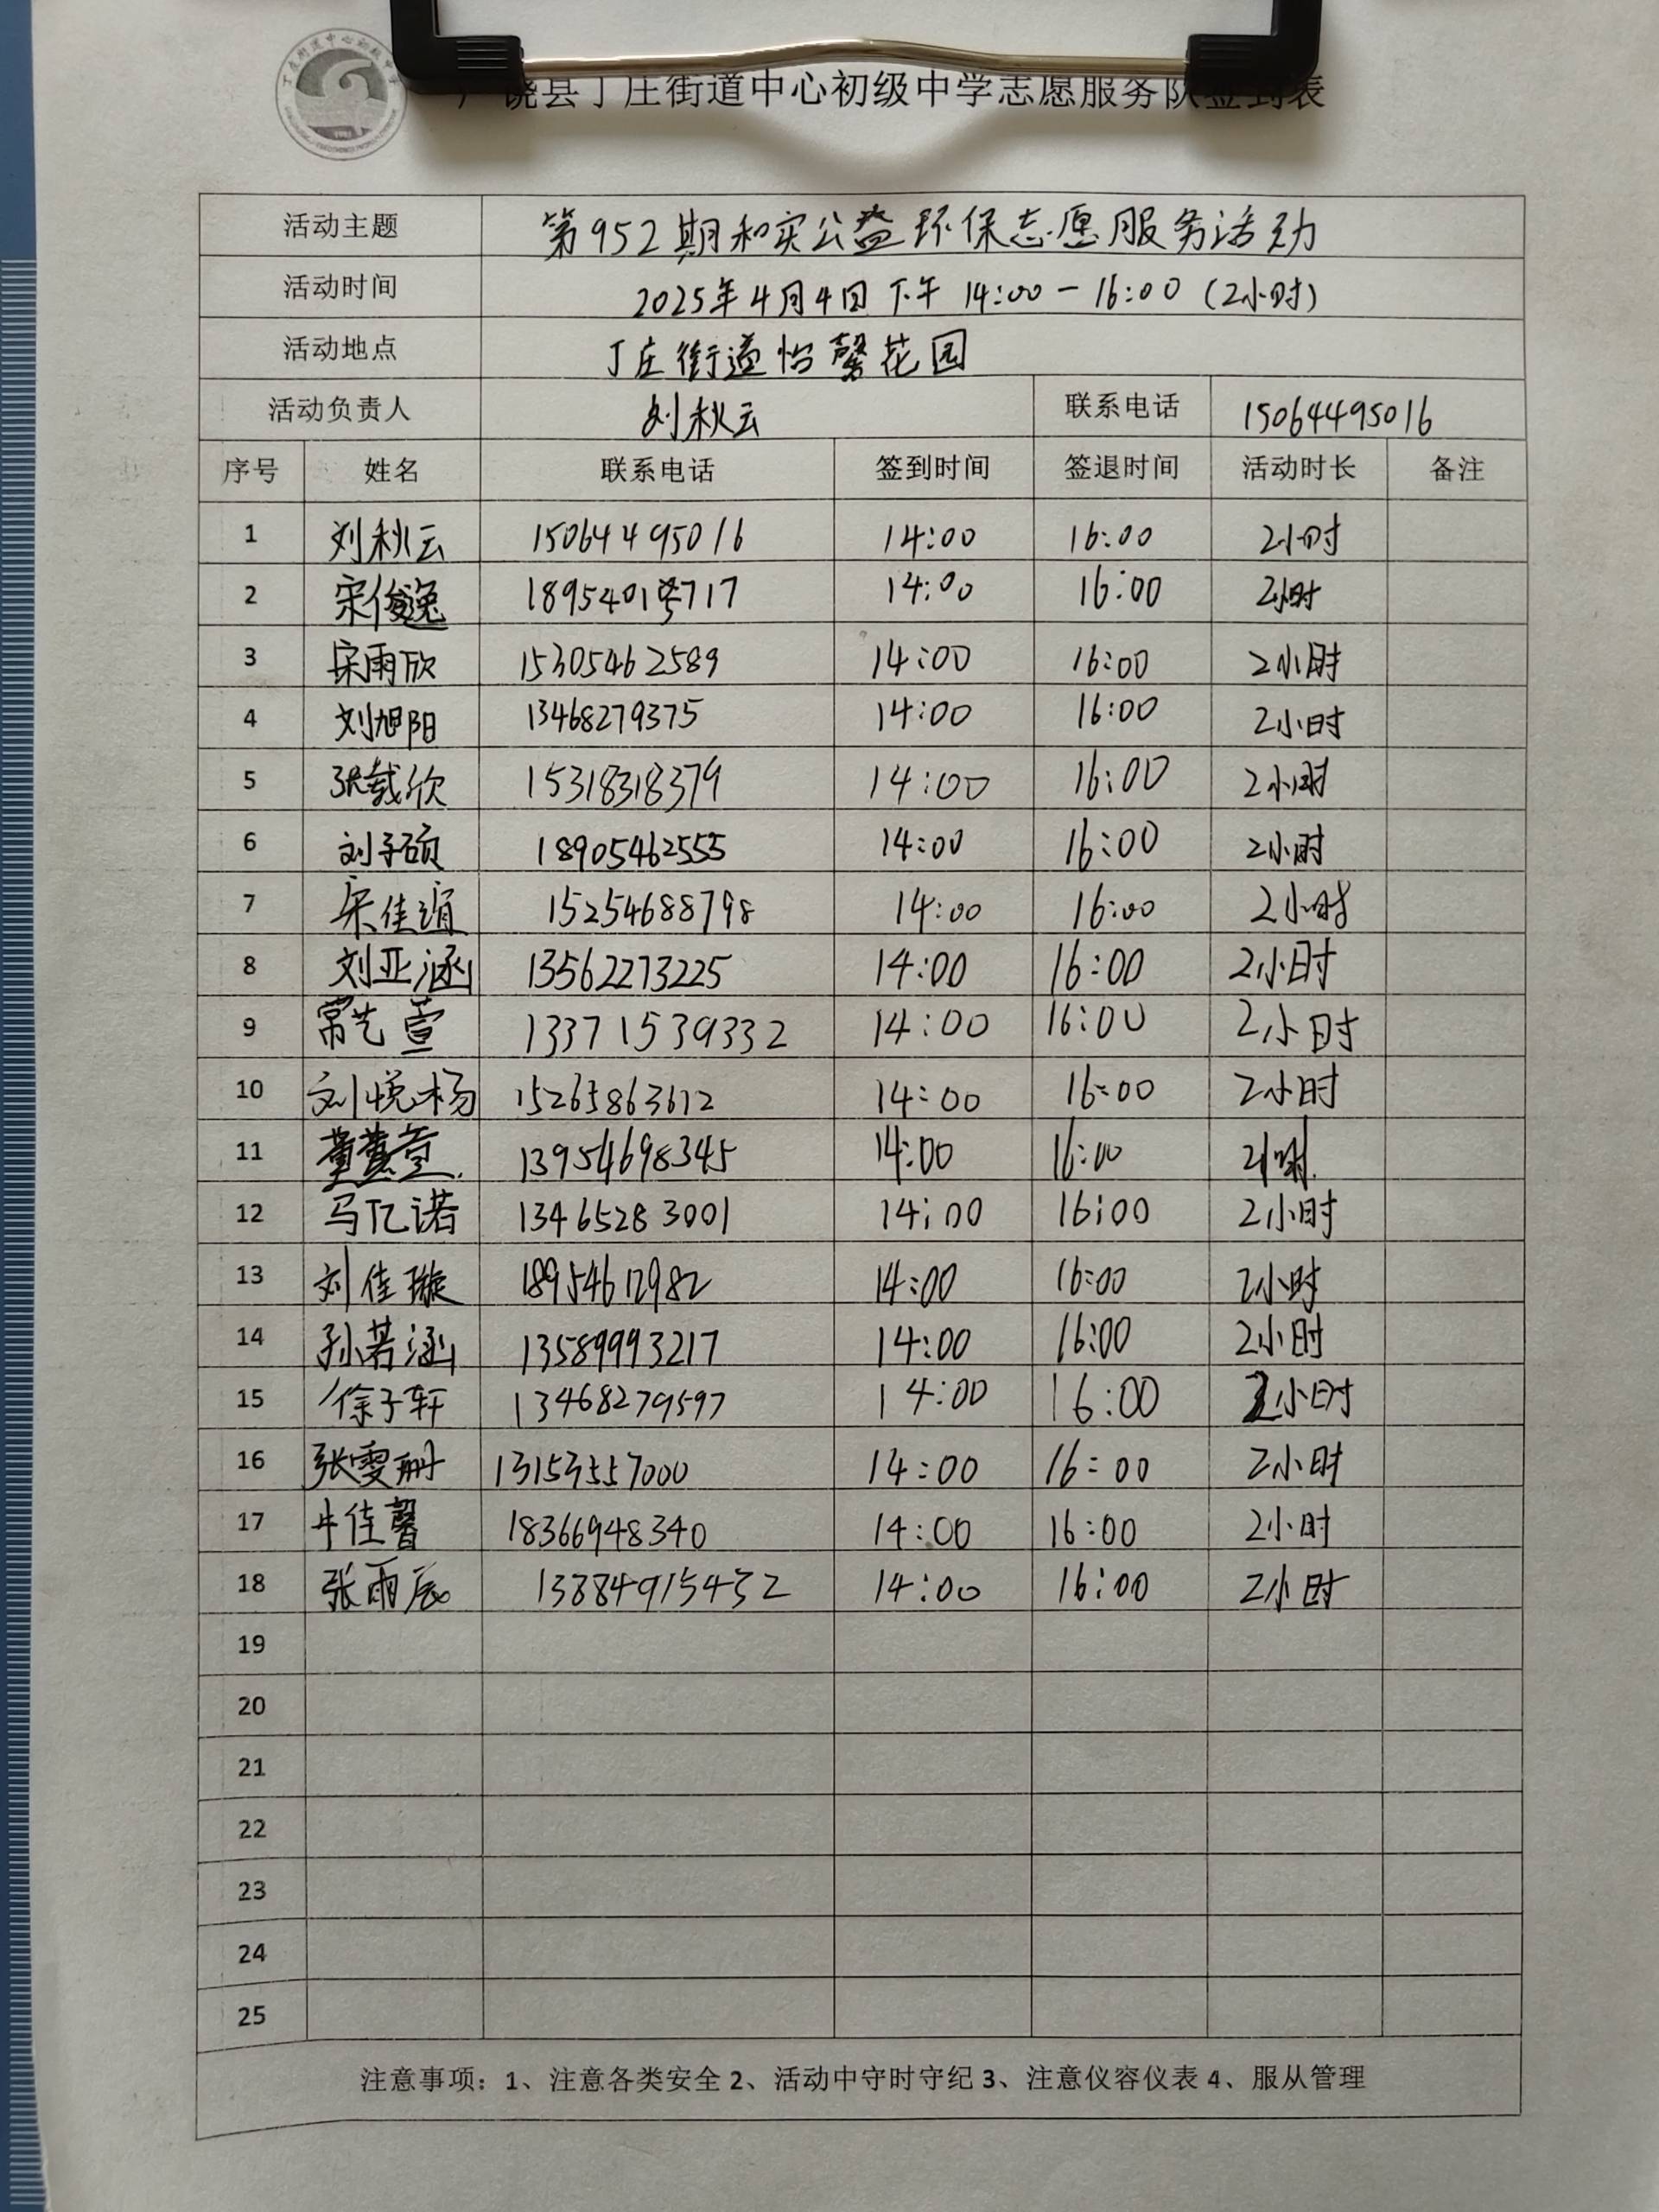 广饶县丁庄街道中心初级中学志愿服务队签到表
活动主题 第952期和实公益环保志愿服务活动
活动时间 2025年4月4日下午 14:00-16:00(2小时)
活动地点 丁庄街道怡馨花园
活动负责人 刘秋云 联系电话 15064495016
序号 姓名 联系电话 签到时间 签退时间 活动时长 备注
1 刘秋云 15064495016 14:00 16:00 2小时
2 宋俊逸 14:00 16:00 2小时
3 宋雨欣 15305462589 14:00 16:00 2小时
4 刘旭阳 13468279375 14:00 16:00 2小时
5 张载欣 15318318379 14:00 16:00 2小时
6 刘子硕 18905462555 14:00 16:00 2小时
7 宋佳 15254688798 14:00 16:00 2小时
8 刘亚涵 13562273225 14:00 16:00 2小时
9 常艺萱 13371539332 14:00 16:00 2小时
10 刘悦杨 15265863612 14:00 16:00 2小时
11 13954698345 14:00 16:00 2小时
12 马亿诺 13465283001 14:00 16:00 2小时
13 刘佳璇 18954612982 14:00 16:00 2小时
14 孙若涵 13589993217 14:00 16:00 2小时
15 徐子轩 13468279597 14:00 16:00 2小时
16 张雯珊 14:00 16:00 2小时
17 牛佳馨 18366948340 14:00 16:00 2小时
18 张雨辰 13884915432 14:00 16:00 2小时
19
20
21
22
23
24
25
注意事项：1、注意各类安全 2、活动中守时守纪 3、注意仪容仪表 4、服从管理